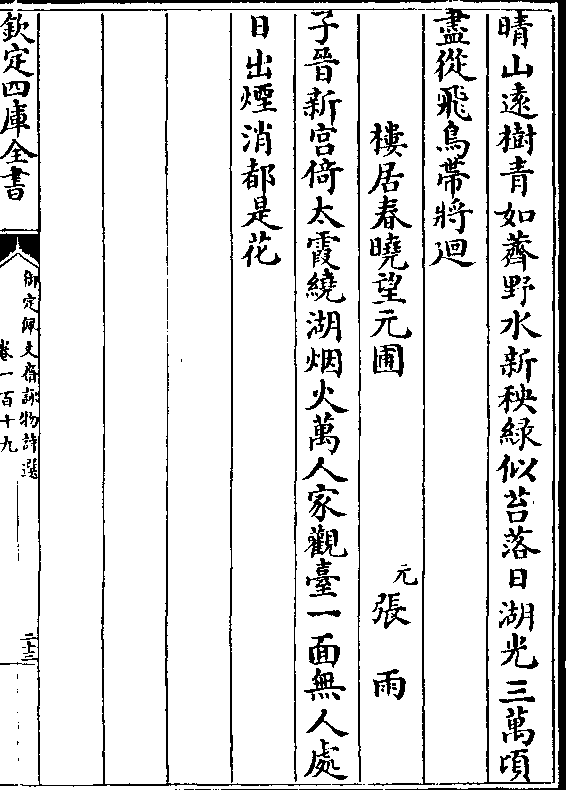 晴山遠樹青如薺野水新秧緑似苔落日湖光三萬頃
盡從飛鳥帶將廻
樓居春曉望元圃
元張雨
子晉新宫倚太霞繞湖烟火萬人家觀臺一面無人處
日出煙消都是花
欽定四庫全書
御定佩文齋詠物詩選
卷一百十九
二十三